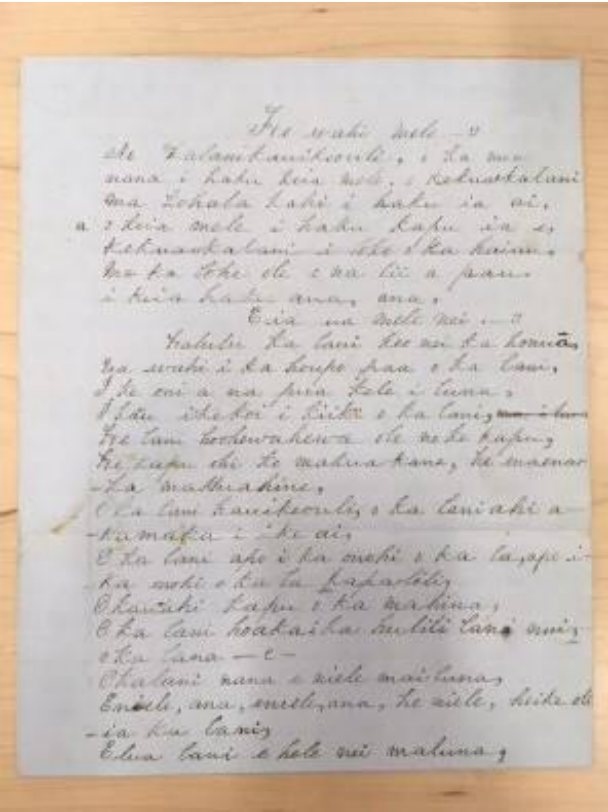 He wahi mele
No Kalanikauikeouli, o ka mea
nana i haku keia mele, o Kekuaokalani
ma Kohala kahi i haku ia ai,
a o keia mele i haku kapu ia e,
Kekuaokalani i loko o ka
me ka lohe ole o na lii a pau
i keia haku ana, ana,
Eia ua mele nei
ka lani neo nei ka honua,
wahi i ka houpo paa o ka lani,
I ke oni a na pua kele i luna,
i o ka lani,
He lani hoohewahewa ole no ke kapu,
He kapu ke makuakane, he
-ka makuahine,
O ka lani Kauikeouli, o ka lani ahi a-
-kamaka i ike ai,
O ka lani apo i ka onohi o ka la, apo i-
ka onohi o ka la
kapu o ka mahina,
O ka lani hoaka i ka huliti lani nui,
o ka lana — e —
O kalani nana e niele mai luna,
Eniele, ana, eniele, ana, he niele, ole
-ia ka lani,
Elua lani e hele nei maluna,